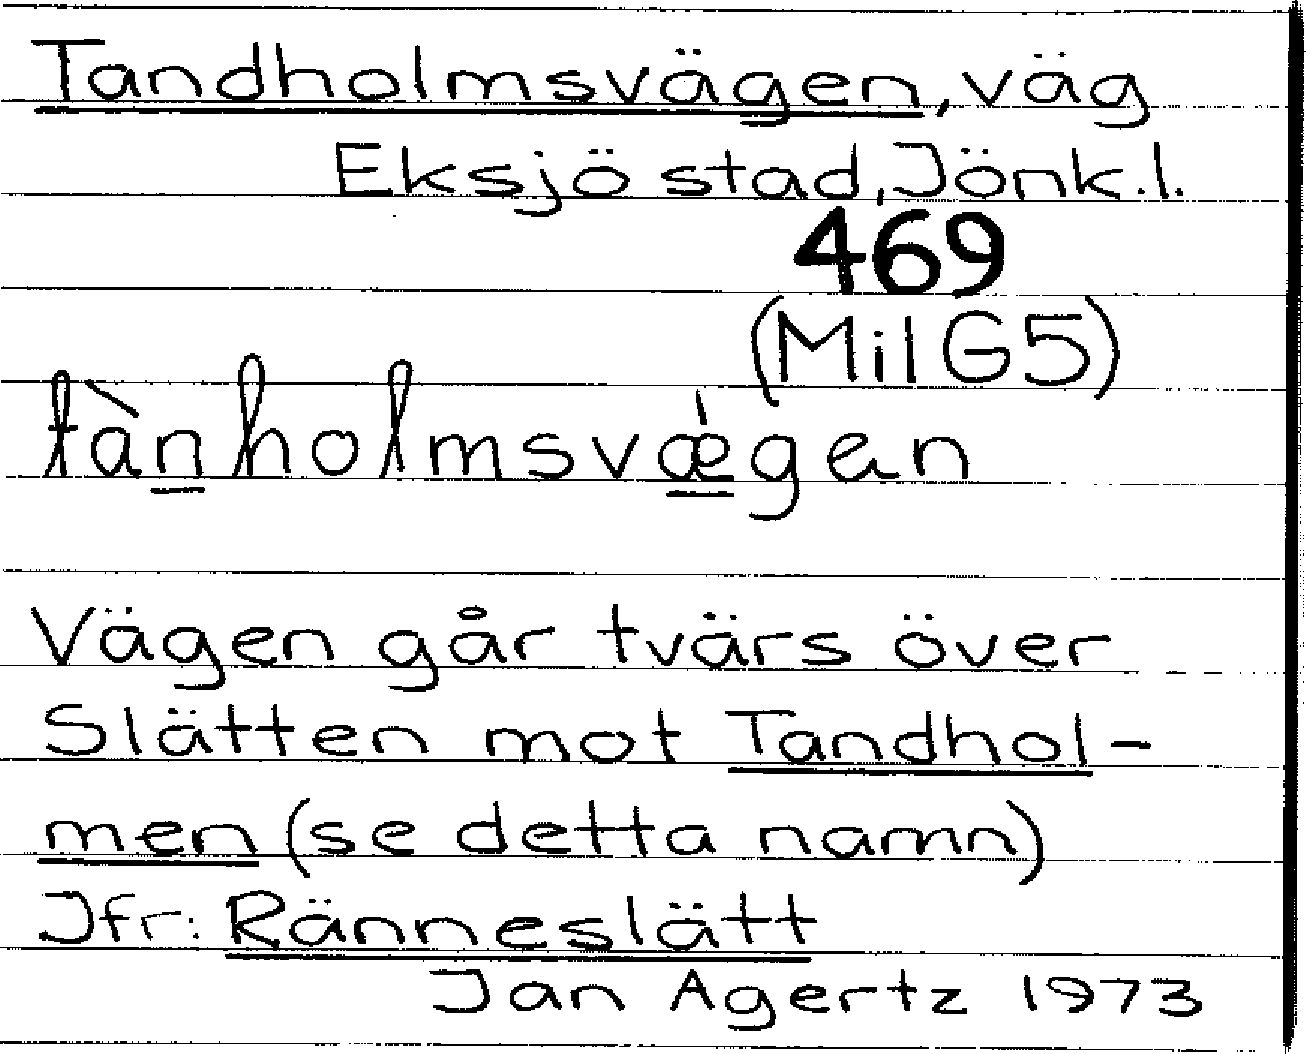 Tandholmsvägen, väg
Eksjö stad, Jönk.l.
469
(Mil G5)
tànholmsvǽgen
Vägen går tvärs över
Slätten mot Tandhol-
men (se detta namn)
Jfr: Ränneslätt
Jan Agertz 1973